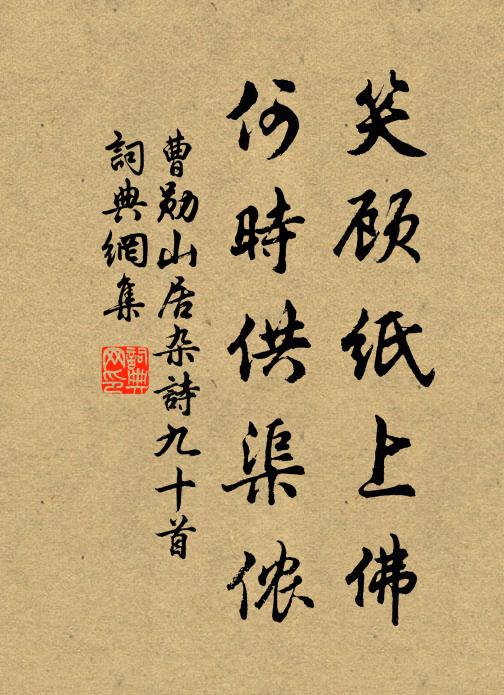 笑顾纸上佛
何時供渠侬
曹勋山居杂詩九十首
詞典網集
詞典網印